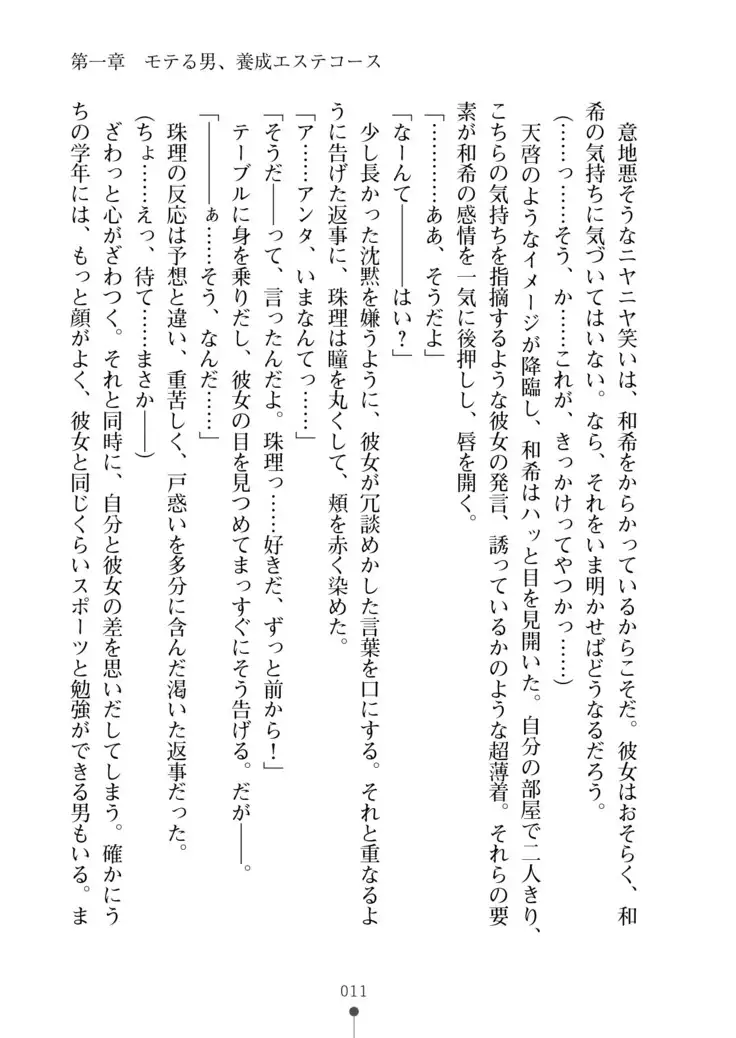 第一章　モテる男、養成エステコース
　意地悪そうなニヤニヤ笑いは、和希をからかっているからこそだ。彼女はおそらく、和
希の気持ちに気づいてはいない。なら、それをいま明かせばどうなるだろう。
(……っ……そう、か……これが、きっかけってやつかっ……)
　天啓のようなイメージが降臨し、和希はハッと目を見開いた。自分の部屋で二人きり、
こちらの気持ちを指摘するような彼女の発言、誘っているかのような超薄着。それらの要
素が和希の感情を一気に後押しし、唇を開く。
「…………ああ、そうだよ」
「なーんて――――はい？」
　少し長かった沈黙を嫌うように、彼女が冗談めかした言葉を口にする。それと重なるよ
うに告げた返事に、珠理は瞳を丸くして、頬を赤く染めた。
「ア……アンタ、いまなんてっ……」
「そうだ――って、言ったんだよ。珠理っ……好きだ、ずっと前から！」
　テーブルに身を乗りだし、彼女の目を見つめてまっすぐにそう告げる。だが――。
「――――ぁ……そう、なんだ……」
　珠理の反応は予想と違い、重苦しく、戸惑いを多分に含んだ渇いた返事だった。
(ちょ……えっ、待て……まさか――)
　ざわっと心がざわつく。それと同時に、自分と彼女の差を思いだしてしまう。確かにう
ちの学年には、もっと顔がよく、彼女と同じくらいスポーツと勉強ができる男もいる。ま
011